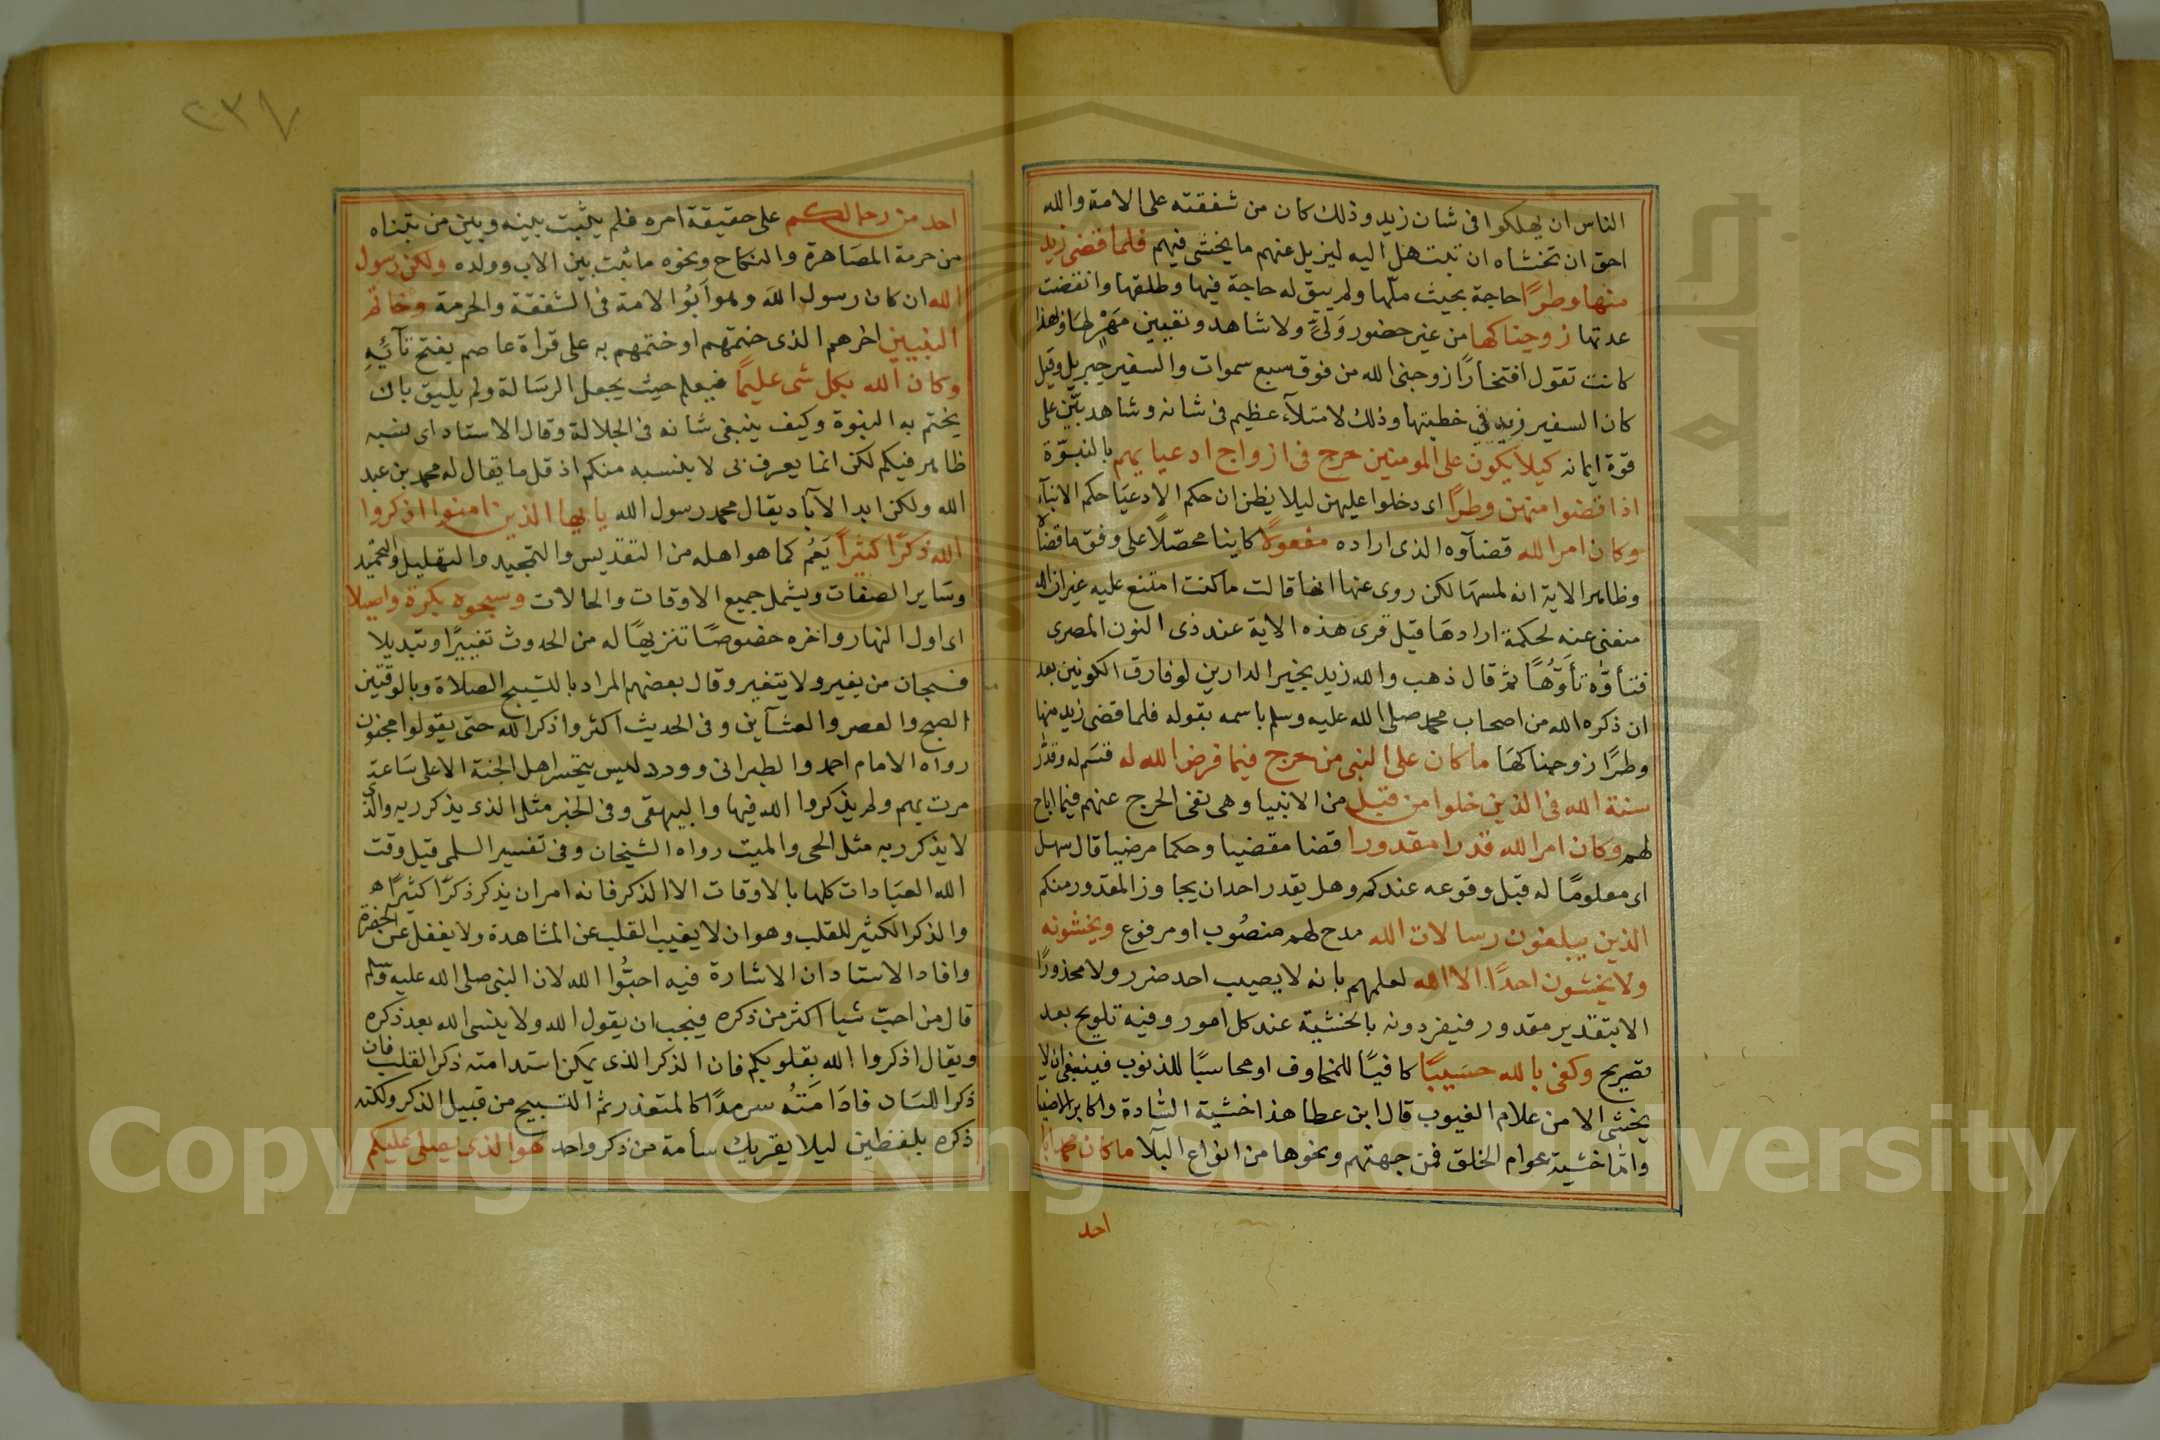 الناس ان يهلكوا فى شان زيد وذلك كان من شفقته على الامة والله
احق ان تخشاه ان تبتهل اليه ليزيل عنهم ما يخشى فيهم فلما قضى زيد
منها وطرًا حاجة بحيث ملّها ولم يبق له حاجة فيها وطلقها وانقضت
عدتها زوجناكها من غير حضور وَلىّ ولا شاهد وتعيين مَهْر لها ولهذا
كانت تقول افتخارًا زوجنى الله من فوق سبع سموات والسفير جبريل وقيل
كان السفير زيد في خطبتها وذلك لابتلآء عظيم فى شانه وشاهد بيّن على
قوة ايمانه كيلا يكون على المومنين حرج فى ازواج ادعيايهم بالنبوّة
اذا قضوا منهن وطرًا اى دخلوا عليهن ليلا يظن ان حكم الادعيَا حكم الابنآء
وكان امر الله قضآوه الذى اراده مفعولًا كاينا محصّلًا على وفق ما قضاه
وظاهر الاية انه لمسهَا لكن روى عنها انها قالت ما كنت امتنع عليه غير ان الله
منعنى عنه لحكمة ارادهَا قيل قرى هذه الاية عند ذى النون المصرى
فتأوّه تأوّهًا ثم قال ذهب والله زيد بخير الدارين لو فارق الكونين بعد
ان ذكره الله من اصحاب محمد صلى الله عليه وسلم باسمه بقوله فلما قضى زيد منها
وطرًا زوجناكهَا ما كان على النبى من حرج فيما فرض الله له قسَم له وقدّر
سنة الله فى الذين خلوا من قبل من الانبيا وهى نفى الحرج عنهم فيما اباح
لهم وكان امر الله قدرا مقدورا قضا مقضيا وحكما مرضيا قال سهل
اى معلومًا له قبل وقوعه عندكم وهل يقدر احد ان يجاوز المقدور منكم
الذين يبلغون رسالات الله مدح لهم منصُوب او مرفوع ويخشونه
ولا يخشون احدًا الا الله لعلمهم بانه لا يصيب احد ضرر ولا محذورًا
الا بتقدير مقدور فيفردونه بالخشية عند كل امور وفيه تلويح بعد
تصريح وكفى بالله حسيبًا كافيًا للمخاوف او محاسبًا للذنوب فينبغى ان لا
يخشى الا من علام الغيوب قال ابن عطا هذا خشية السّادة والاكابر الاصفيا
وامّا خشية عوام الخلق فمن جهنم ونحوها من انواع البلآ ما كان محمد ابا
احد
٢٣٧
احد من رجالكم على حقيقة امره فلم يثبت بينه وبين من تبناه
من حرمة المصَاهرة والنكاح ونحوه ما ثبت بين الاب وولده ولكن رسول
الله ان كان رسول الله وهو اَبُوا الامة فى الشفقة والحرمة وخاتم
النبيين اخرهم الذى ختمهم او ختمهم به على قراة عاصم بفتح تآئهِ
وكان الله بكل شى عليمًا فيعلم حيث يجعل الرسَالة ولم يليق بان
يختم به النبوة وكيف ينبغى شانه فى الجلالة وقال الاستاد اى نسبه
ظاهر فيكم لكن انما يعرف بى لا بنسبه منكم اذ قل ما يقال له محمد بن عبد
الله ولكن ابد الآباد يقال محمد رسول الله يا ايها الذين امنوا اذكروا
الله ذكرًا كثيرًا يَعُم كما هو اهله من التقديس والتمجيد والتهليل والتحميد
وسَاير الصفات ويشمل جميع الاوقات والحالات وسبحوه بكرة واصيلا
اى اول النهار واخره خصُوصًا تنزيهًا له من الحدوث تغييرًا وتبديلا
فسبحان من يغير ولا يتغير وقال بعضهم المراد بالتسبيح الصلاة وبالوقتين
الصبح والعصر والعشآين وفى الحديث اكثروا ذكر الله حتى يقولوا مجنون
رواه الامام احمد والطبرانى وورد ليس يتحسر اهل الجنة الا على سَاعة
مرت بهم ولم يذكروا الله فيها والبيهقى وفى الخبر مثل الذى يذكر ربه والذى
لا يذكر ربه مثل الحى والميت رواه الشيخان وفى تفسير السلمى قيل وقت
الله العبَادات كلها بالاوقات الا الذكر فانه امر ان يذكر ذكرًا كثيرًا
والذكر الكثير للقلب وهو ان لا يغيب القلب عن المشاهدة ولا يغفل عن الحضرة
وافاد الاستاد ان الاشارة فيه احبُّوا الله لان النبى صلى الله عليه وسلم
قال من احبّ شيا اكثر من ذكره فيجب ان يقول الله ولا ينسى الله بعد ذكره
ويقال اذكروا الله بقلوبكم فان الذكر الذى يمكن استدامته ذكر القلب فان
ذكر اللسَان فادَامَتُه سرمدًا كالمتعذر ثم التسبيح من قبيل الذكر ولكنه
ذكره بلفظين ليلا يقربك سأمة من ذكر واحد هو الذى يصلى عليكم
Copyright © King Saud University